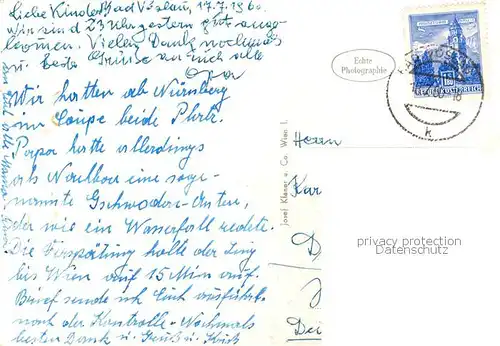 Liebe Kinder! Bad Vöslau, 17.7.1960.
Wir sind 23 Uhr gestern gut ange-
kommen. Vielen Dank nochmals
u. beste Grüße an euch alle
Opa
Wir hatten ab Nürnberg
im Coupe beide Platz.
Papa hatte allerdings
als Nachbar eine soge-
nannte
der wie ein Wasserfall redete.
Die Verspätung holte der Zug
bis Wien auf 15 Min auf.
Brief sende ich Euch ausführl.
nach der Kontrolle - Nochmals
besten Dank u. Gruß u. Kuß
Echte
Photographie
REPUBLIK ÖSTERREICH
k
Josef Klener u. Co. Wien I.
Herrn
Kar
D
J
Dei
privacy protection
Datenschutz